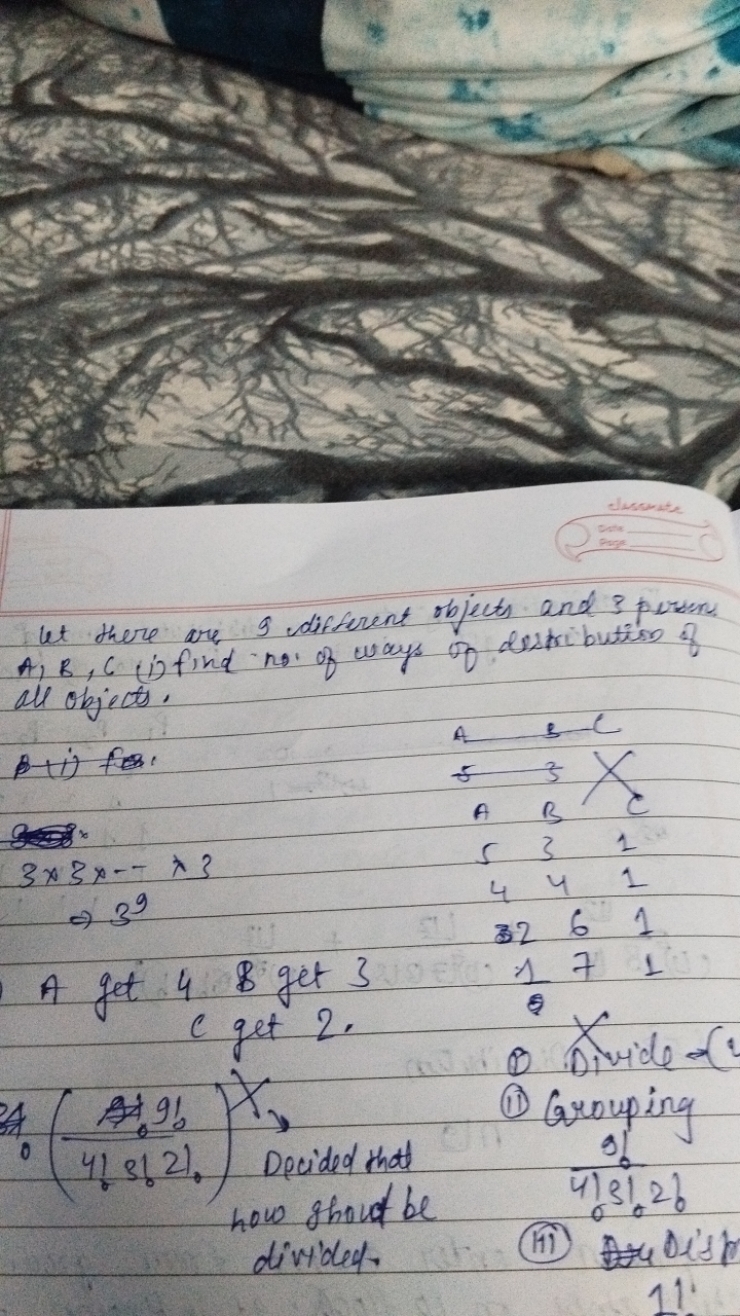 classmate
Date
Page
let there are 9 different objects and 3 persons
A, B, C (i) find no. of ways of distribution of
all objects.
A B C
5 3
A B C
3 × 3 × -- × 3
5 3 1
⇒ 3⁹
4 4 1
2 6 1
A get 4 B get 3
1 7 1
C get 2.
(i) Divide
(ii) Grouping
(9! / 4! 3! 2!)
9! / 4! 3! 2!
Decided that
how should be
divided.
(iii)
1!